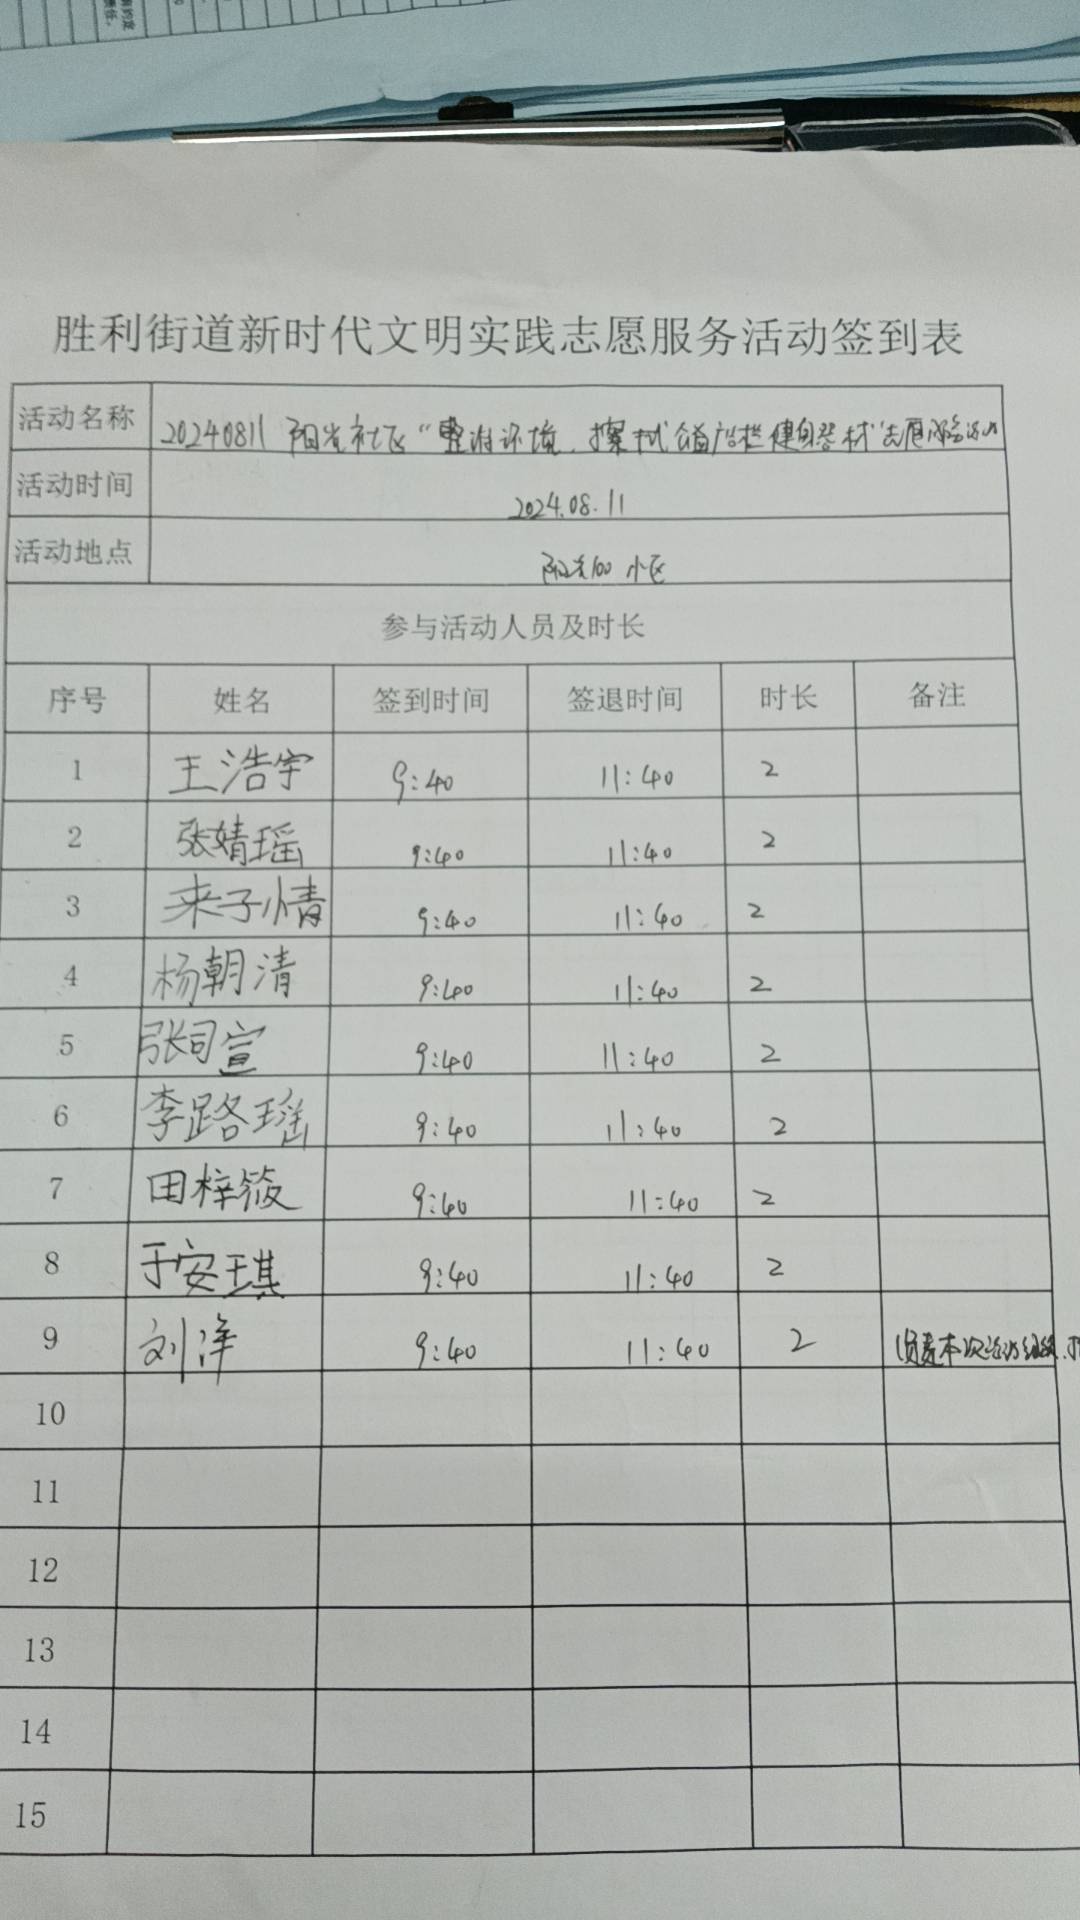 胜利街道新时代文明实践志愿服务活动签到表
活动名称 20240811 阳光社区“整治环境、擦拭公益广告栏健身器材”志愿服务活动
活动时间 2024.08.11
活动地点 阳光100 小区
参与活动人员及时长
序号 姓名 签到时间 签退时间 时长 备注
1 王浩宇 9:40 11:40 2
2 张婧瑶 9:40 11:40 2
3 来子情 9:40 11:40 2
4 杨朝清 9:40 11:40 2
5 张司宣 9:40 11:40 2
6 李路瑶 9:40 11:40 2
7 田梓筱 9:40 11:40 2
8 于安琪 9:40 11:40 2
9 刘洋 9:40 11:40 2 负责本次活动组织、
10
11
12
13
14
15